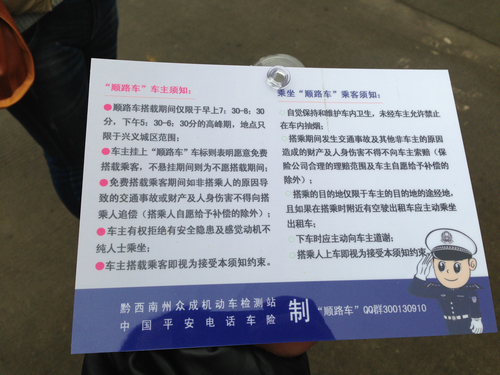 “顺路车”车主须知：
●顺路车搭载期间仅限于早上7：30-8：30
分，下午5：30-6：30分的高峰期，地点只
限于兴义城区范围；
●车主挂上“顺路车”车标则表明愿意免费
搭载乘客，不悬挂期间则为不愿搭载期间；
●免费搭载乘客期间如非搭乘人的原因导
致的交通事故或财产及人身伤害不得向搭
乘人追偿（搭乘人自愿给予补偿的除外）；
●车主有权拒绝有安全隐患及感觉动机不
纯人士乘坐；
●车主搭载乘客即视为接受本须知约束。
乘坐“顺路车”乘客须知：
自觉保持和维护车内卫生，未经车主允许禁止
在车内抽烟；
搭乘期间发生交通事故及其他非车主的原因
造成的财产及人身伤害不得不向车主索赔（保
险公司合理的理赔范围及车主自愿给予补偿的
除外）；
搭乘的目的地仅限于车主的目的地的途经地，
且如果在搭乘时附近有空驶出租车应主动乘坐
出租车；
下车时应主动向车主道谢；
搭乘人上车即视为接受本须知约束。
黔西南州众成机动车检测站
中国平安电话车险
制
“顺路车”QQ群300130910